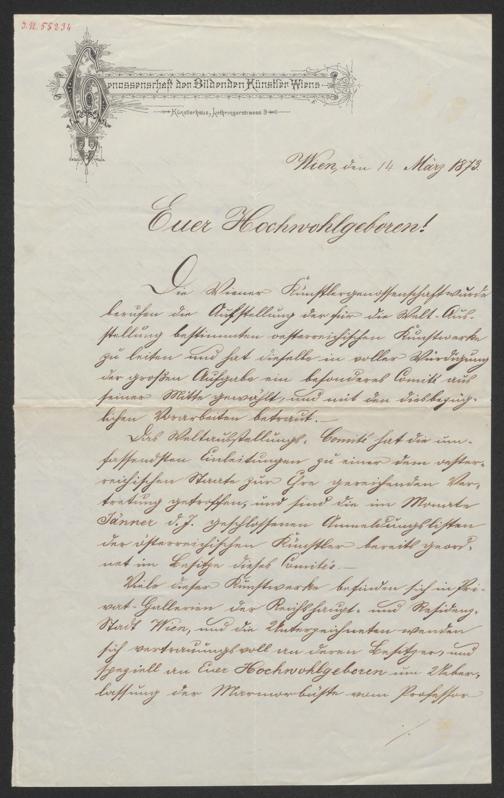 J.N. 55234
Genossenschaft der Bildenden Künstler Wiens
Künstlerhaus, Lothringerstrasse 9
Wien, den 14 März 1873.
Euer Hochwohlgeboren!
Die Wiener Künstlergenossenschaft wurde
berufen die Aufstellung der für die Welt-Aus-
stellung bestimmten oesterreichischen Kunstwerke
zu leiten und hat dieselbe in voller Würdigung
der großen Aufgabe ein besonderes Comité aus
seiner Mitte gewählt, und mit den diesbezüg-
lichen Vorarbeiten betraut.
Das Weltausstellungs-Comité hat die um-
fassendsten Einleitungen zu einer dem oester-
reichischen Staate zur Ehre gereichenden Ver-
tretung getroffen, und sind die im Monate
Jänner d. J. geschlossenen Anmeldungslisten
der österreichischen Künstler bereits geord-
net im Besitze dieses Comités.
Viele dieser Kunstwerke befinden sich in Pri-
vat-Gallerien der Reichshaupt- und Residenz-
Stadt Wien, und die Unterzeichneten wenden
sich vertrauungsvoll an deren Besitzer, und
speziell an Euer Hochwohlgeboren um Ueber-
lassung der Marmorbüste vom Professor
./.